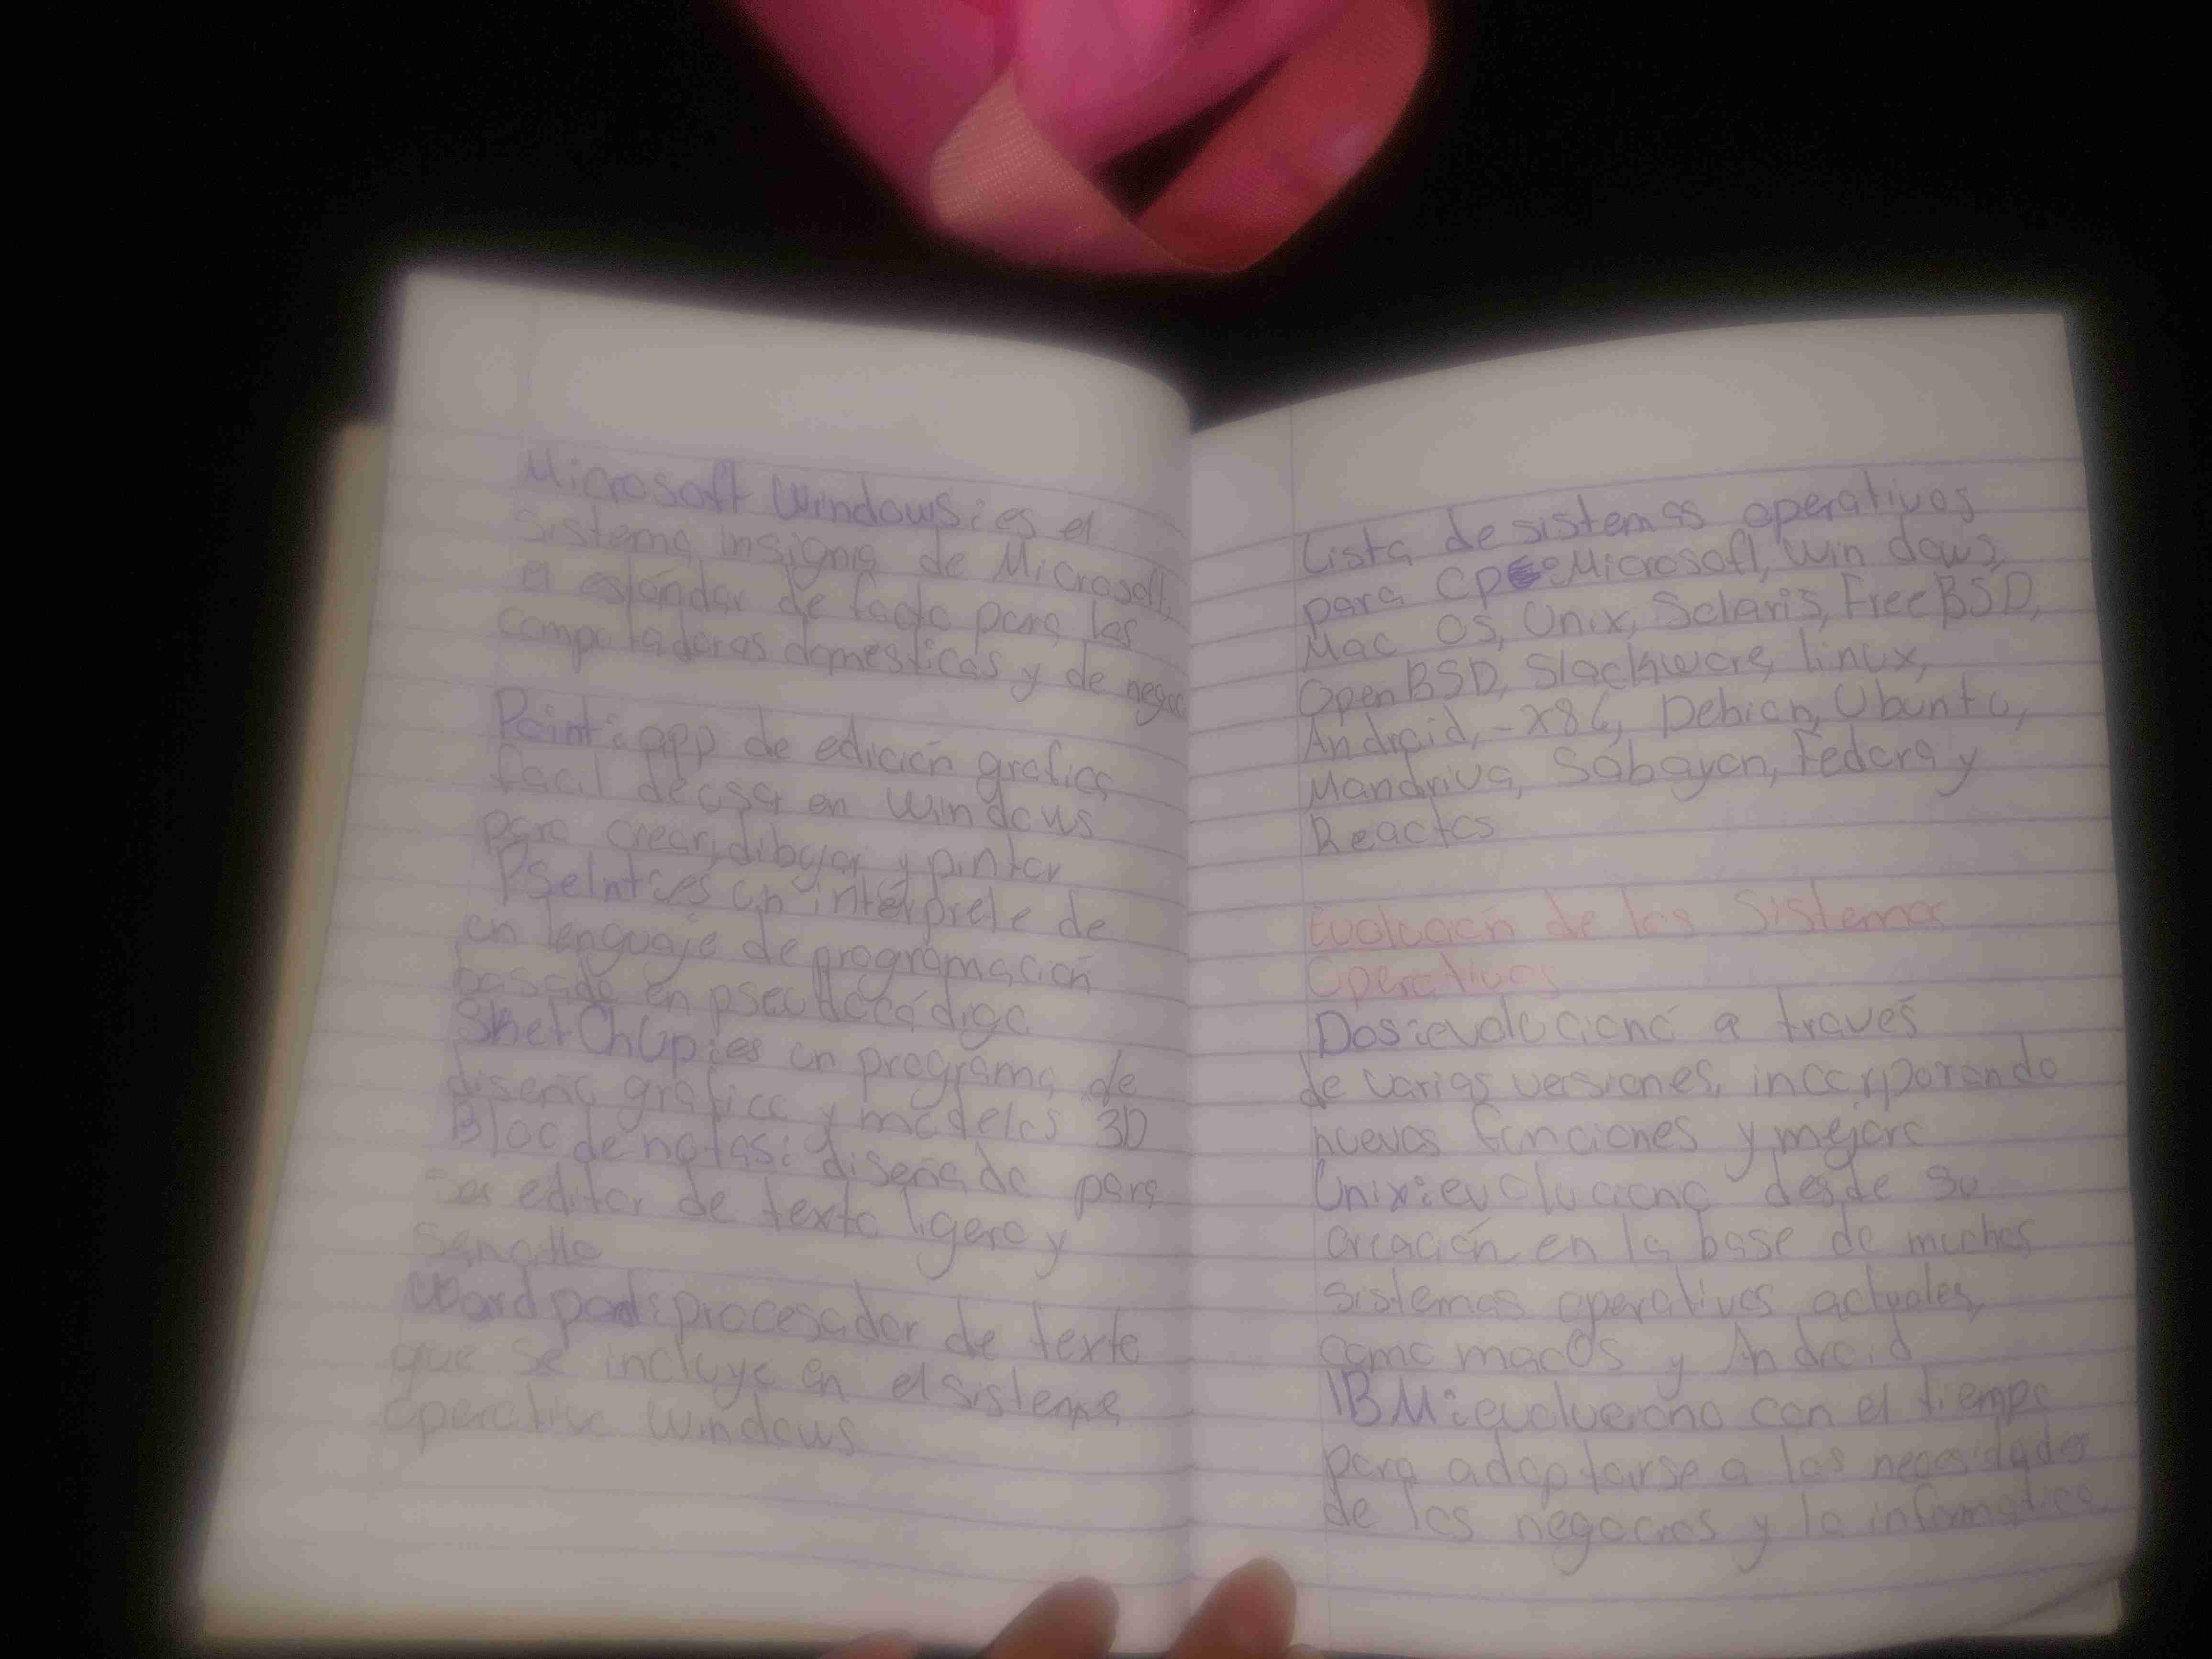 Microsoft Windows: es el
sistema insignia de Microsoft,
el estándar de facto para las
computadoras domesticas y de negoc
Paint: app de edición grafica
facil de usar en windows
para crear, dibujar y pintar
PseInt: es un intérprete de
un lenguaje de programación
basado en pseudocódigo
SketchUp: es un programa de
diseño gráfico y modelos 3D
Bloc de notas: diseñado para
ser editor de texto ligero y
sencillo
Word pad: procesador de texto
que se incluye en el sistema
operativo windows
Lista de sistemas operativos
para CP: Microsoft, win dows,
Mac OS, Unix, Solaris, FreeBSD,
OpenBSD, Slackware, linux,
Android, -x86, Debian, Ubuntu,
Mandriva, Sabayon, Fedora y
Reactos
Evolución de los Sistemas
Operativos
Dos: evolucionó a través
de varias versiones, incorporando
nuevas funciones y mejora
Unix: evoluciono desde su
creación en la base de muchos
sistemas operativos actuales,
como macOs y Android
IBM: evoluciono con el tiempo
para adaptarse a las necesidades
de los negocios y la informatica